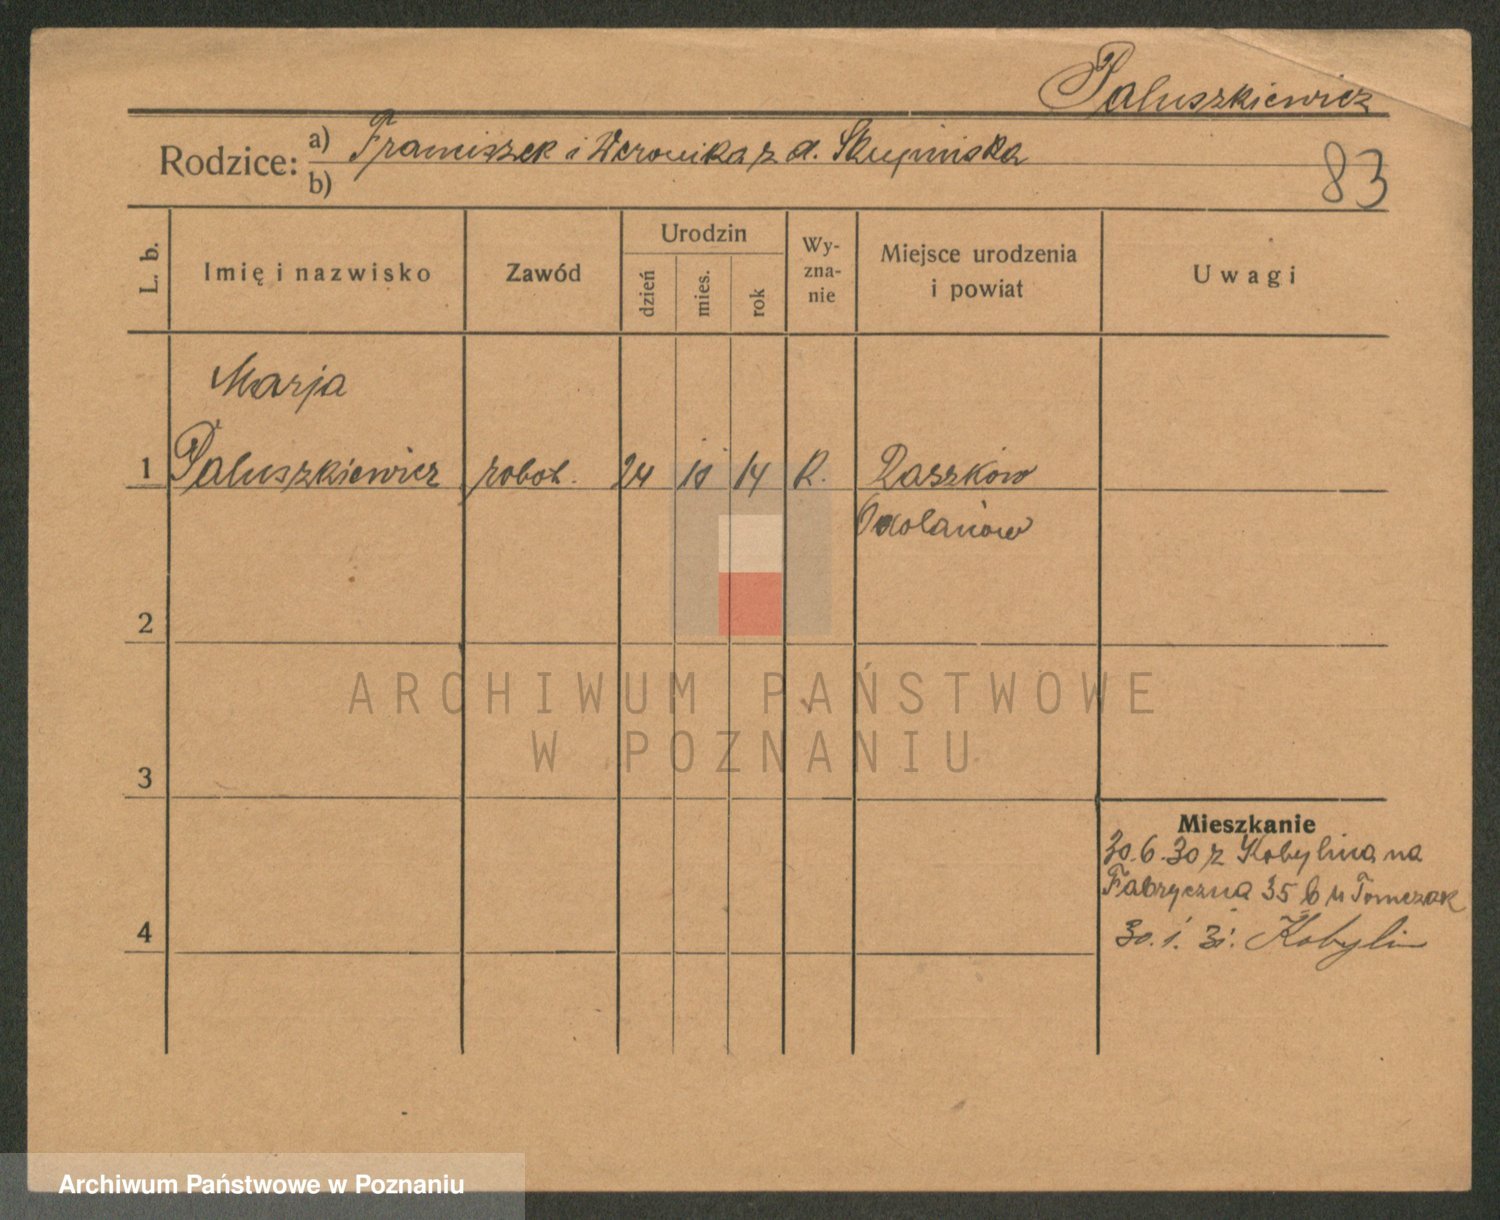 Paluszkiewicz
Rodzice: a) Franciszek i Weronika z d. Skupińska
b)
83
L. b.
Imię i nazwisko
Zawód
Urodzin
dzień
mies.
rok
Wy-
zna-
nie
Miejsce urodzenia
i powiat
Uwagi
Marja
1 Paluszkiewicz robot. 24 14 R. Raszków
Odolanów
2
3
4
Mieszkanie
30.6.30 z Kobylina na
Fabryczna 35 b u Tomczak
30.1.31. Kobylin
ARCHIWUM PAŃSTWOWE
W POZNANIU
Archiwum Państwowe w Poznaniu